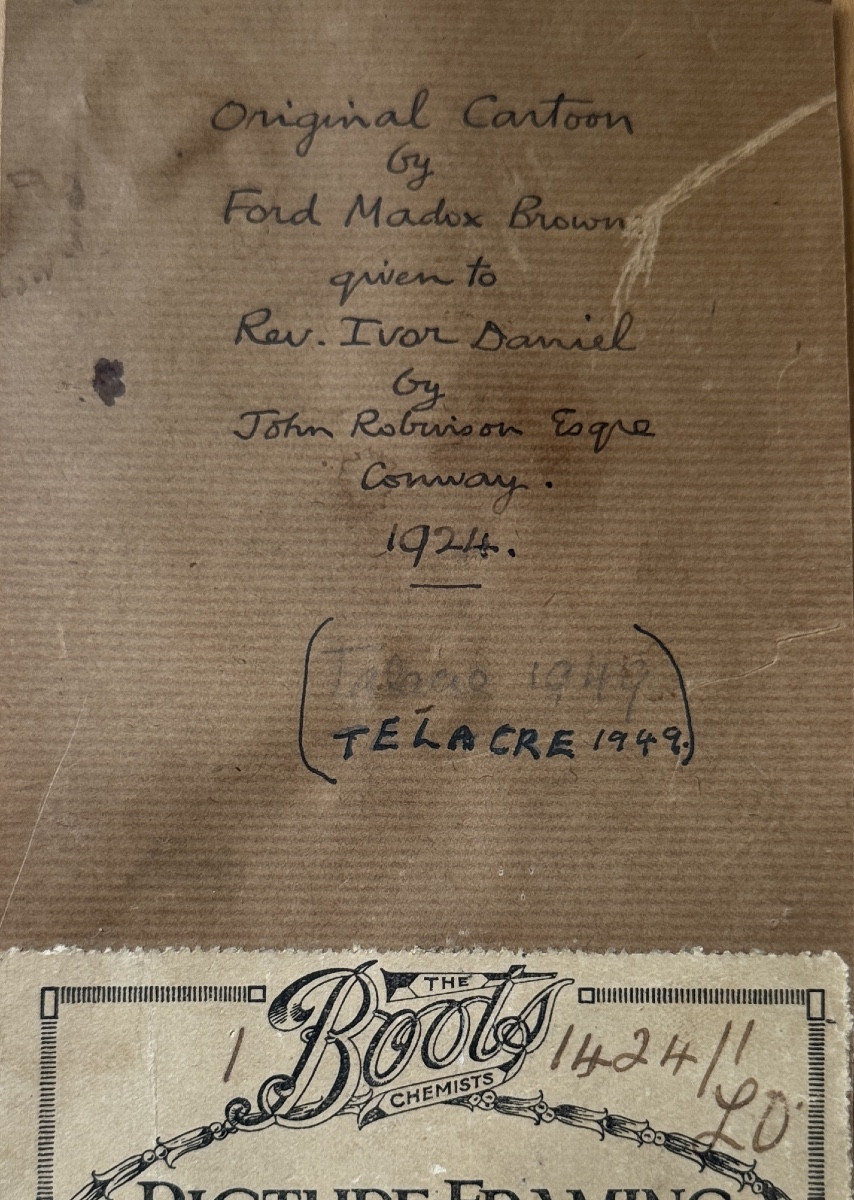 Original Cartoon
by
Ford Madox Brown
given to
Rev. Ivor Daniel
by
John Robinson Esqre
Conway.
1924.
(Talacre 1949
TELACRE 1949.)
THE
Boots
CHEMISTS
1 1424/11
LD
PICTURE FRAMING